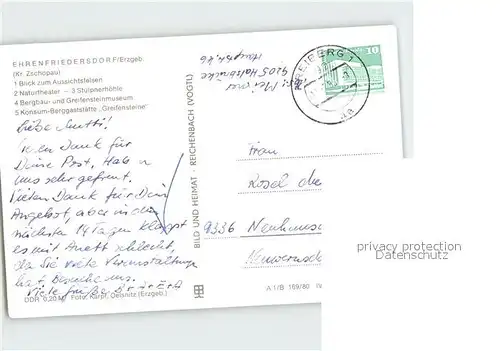 EHRENFRIEDERSDORF/Erzgeb.
(Kr. Zschopau)
1 Blick zum Aussichtsfelsen
2 Naturtheater – 3 Stülpnerhöhle
4 Bergbau- und Greifensteinmuseum
5 Konsum-Berggaststätte „Greifensteine"
Liebe Mutti!
Vielen Dank für
Deine Post. Hab
uns sehr gefreut.
Vielen Dank für Dein
Angebot, aber in den
nächsten 14 Tagen klappt
es mit Anett schlecht,
da Sie viele
hat. Besuche uns.
Viele Grüße
DDR 0,20 M Foto: Karpf, Oelsnitz (Erzgeb.)
BILD UND HEIMAT · REICHENBACH (VOGTL)
9205 Halsbrücke
FREIBERG 1
10
Frau
Rosel
9336 Neuhausen
A 1/B 169/80
privacy protection
Datenschutz